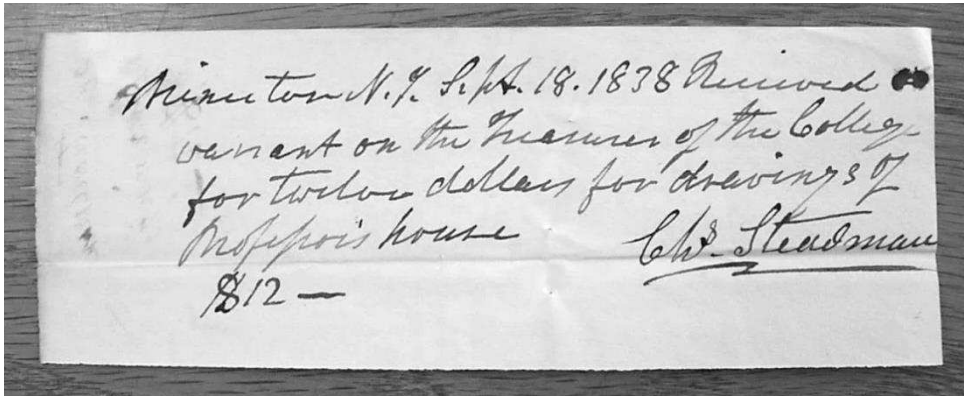 Princeton N.J. Sept. 18. 1838 Received
warrant on the Treasurer of the College
for twelve dollars for drawings of
Professors house
Chs. Steadman
$12 —